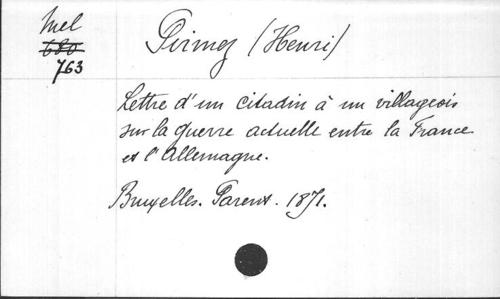 Mel
680
763
Pirmez (Henri)
Lettre d'un citadin à un villageois
sur la guerre actuelle entre la France
et l'Allemagne.
Bruxelles. Parent. 1871.